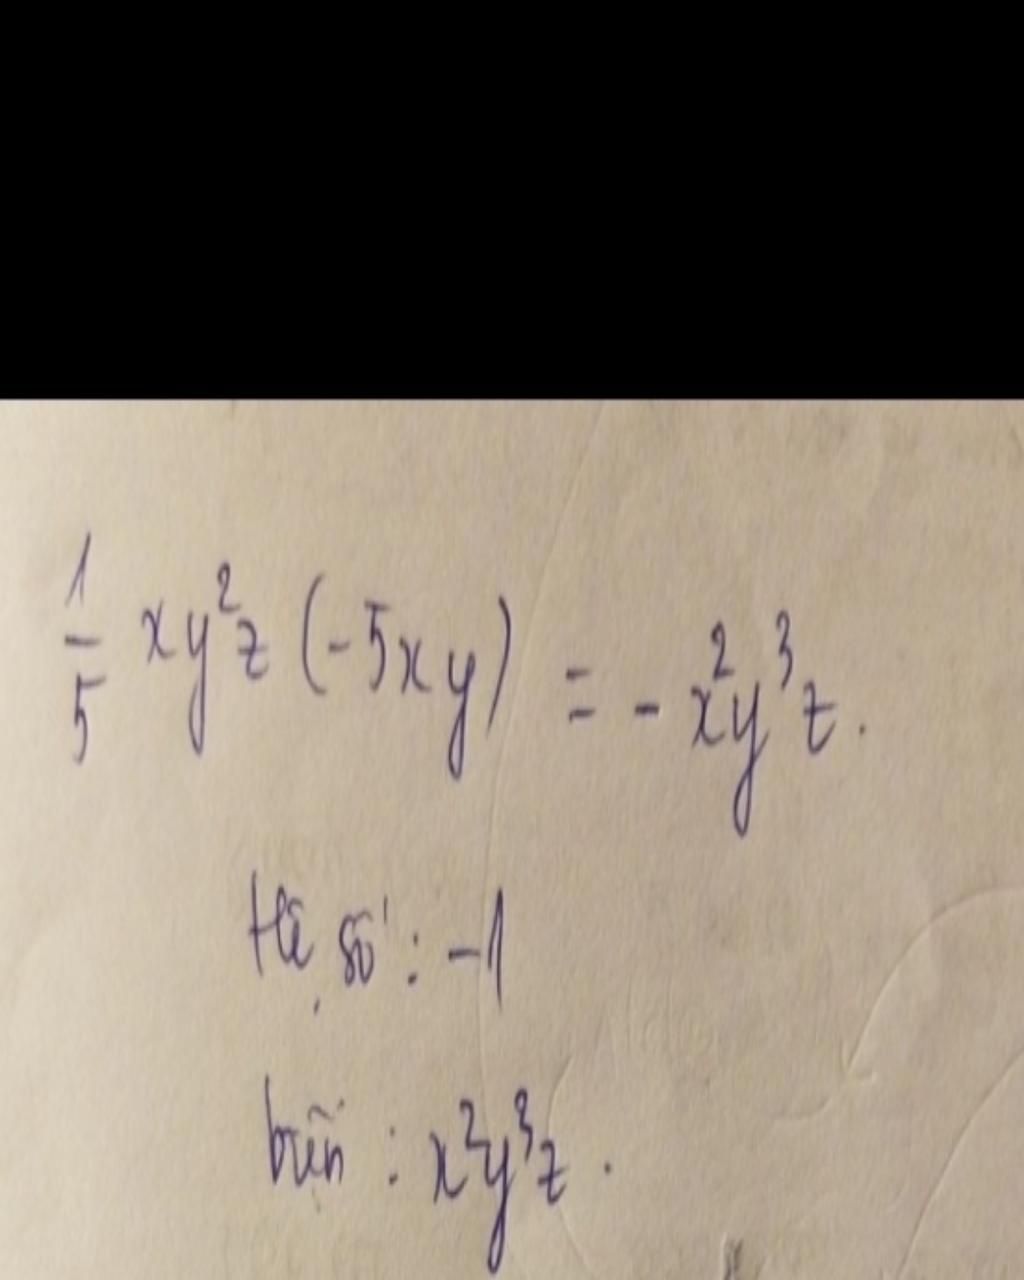 1/5 xy²z (-5xy) = - x²y³z.
Hệ số : -1
biến : x²y³z .